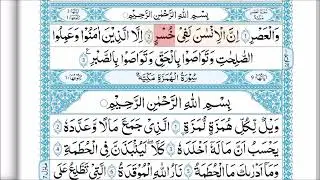 بِسْمِ اللّٰهِ الرَّحْمٰنِ الرَّحِيْمِ
وَالْعَصْرِ ۝١ اِنَّ الْاِنْسَانَ لَفِيْ خُسْرٍ ۝٢ اِلَّا الَّذِيْنَ اٰمَنُوْا وَعَمِلُوا
الصّٰلِحٰتِ وَتَوَاصَوْا بِالْحَقِّ وَتَوَاصَوْا بِالصَّبْرِ ۝٣
سُوْرَةُ الْهُمَزَةِ مَكِّيَّةٌ
بِسْمِ اللّٰهِ الرَّحْمٰنِ الرَّحِيْمِ
وَيْلٌ لِّكُلِّ هُمَزَةٍ لُّمَزَةٍ ۝١ الَّذِيْ جَمَعَ مَالًا وَّعَدَّدَهٗ ۝٢
يَحْسَبُ اَنَّ مَالَهٗٓ اَخْلَدَهٗ ۝٣ كَلَّا لَيُنْۢبَذَنَّ فِي الْحُطَمَةِ ۝٤
وَمَآ اَدْرٰىكَ مَا الْحُطَمَةُ ۝٥ نَارُ اللّٰهِ الْمُوْقَدَةُ ۝٦ الَّتِيْ تَطَّلِعُ عَلَى